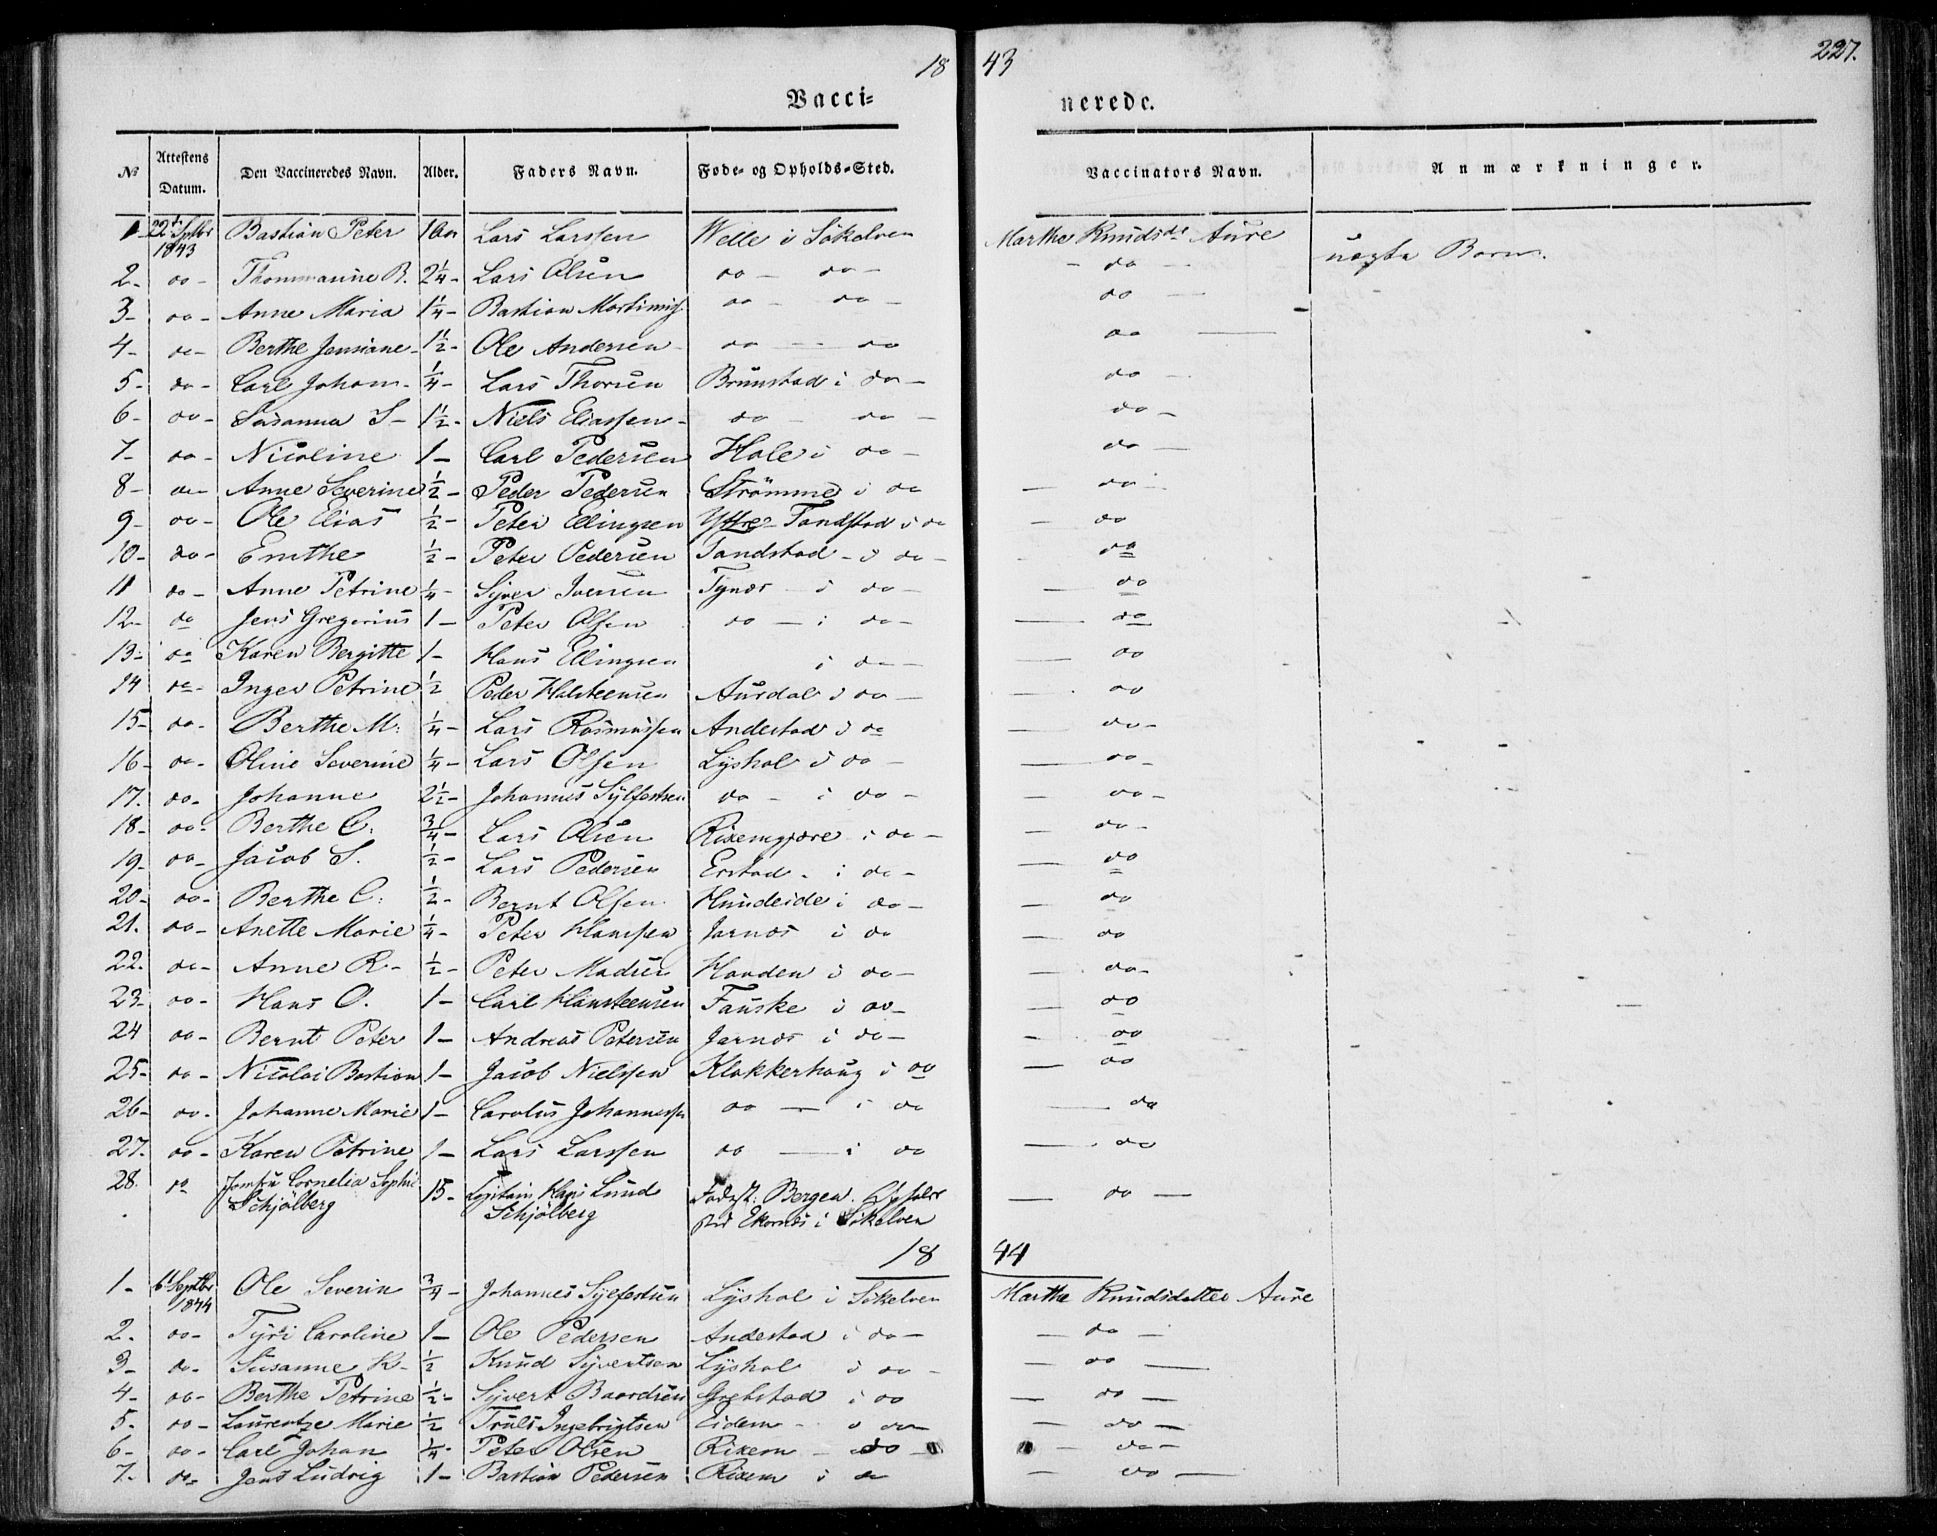 18 43 227.
Vacci= nerede.
№ Attestens Datum. Den Vaccineredes Navn. Alder. Faders Navn. Føde- og Opholds-Sted. Vaccinators Navn. Anmærkninger.
1 22 Septbr 1843 Bastian Peter Lars Larssen Welle i Sökelven Marthe Knudsdr Aure uægte Barn.
2- do - Thommanine B. 2 1/4 - Lars Olsen do - do - - do -
3- do - Anne Maria 1 1/4 - Bastian do - do - do -
4- do - Berthe Jensiane - 1 1/2 - Ole Andersen do - do do -
5- do - Carl Johan - 1/4 - Lars Thorsen Brunstad i do - do -
6- do - Susanna S- 1 1/2 - Niels Eliassen - do do - do -
7- do - Nicoline 1 - Carl Pedersen Hole i do - do -
8- do Anne Severine 1/2 - Peder Pedersen Strömme i do - do -
9- do - Ole Elias 1/2 - Peter Ellingsen Yttre Tandstad i do - do
10- do - Emthe 1/2 - Peter Pedersen Tandstad - i do - do
11 do - Anne Petrine 1/4 - Syver Iversen Tynes - i do - - do
12- do Jens Gregorius 1 - Peter Olsen do - i do - - do
13- do Karen Bergitte 1 - Hans Ellingsen i do - - do
14 do - Inger Petrine 1/2 Peder Halsteensen Aursdal i do - - do
15- do - Berthe M: 1/4 - Lars Rasmussen Andestad i do - do -
16- do - Oline Severine 1/4 - Lars Olsen Lyshol i do - - do -
17. do - Johanne 2 1/2 - Johannes Sylfestsen do - i do - - do -
18- do - Berthe C. 3/4 - Lars Olsen Rixemgjære i do - - do -
19- do - Jacob S. 1/2 - Lars Pedersen Erstad - i do - - do
20- do - Berthe C: 1/2 - Bernt Olsen Hundeide i do - - do
21. do - Anette Marie 1/4 - Peter Hanssen Jarnes i do - do
22. do - Anne R- 1/2 - Peter Madsen Hovden i do - - do -
23- do - Hans O. 1 - Carl Hansteensen Fauske i do - - do
24 do - Bernt Peter 1 - Andreas Petersen Jarnes i do - - do
25- do - Nicolai Bastian 1 - Jacob Nielssen Klokkerhoug i do - do
26- do - Johanne Marie 1 - Carolus Johannessen do - i do - do
27. do - Karen Petrine 1 - Lars Larssen do - i do - do
28. do Jomfru Cornelia Sophie 15- Capitain Hans Lund Fødest: Bergen. - do -
Schjölberg Schjölberg Ekornes i Sökelven
18 44
1- 6 Septbr 1844 Ole Severin 3/4 - Johannes Sylfestsen Lyshol i Sökelven Marthe Knudsdatter Aure
2. do - Tyri Caroline 1 - Ole Pedersen Andestad i do - - do -
3- do - Susanne K- 1/2 Knud Syvertsen Lyshol i do - - do -
4- do - Berthe Petrine 1/2 - Syvert Baardsen Grebstad i do - do -
5. do - Laurentze Marie 1/2 Truls Ingebrigtsen Eidem - i do - do -
6- do - Carl Johan 1/4 - Peter Olsen Rixem - do - - do -
7. do - Jens Ludvig 1 - Bastian Pedersen Rixem i do - do -